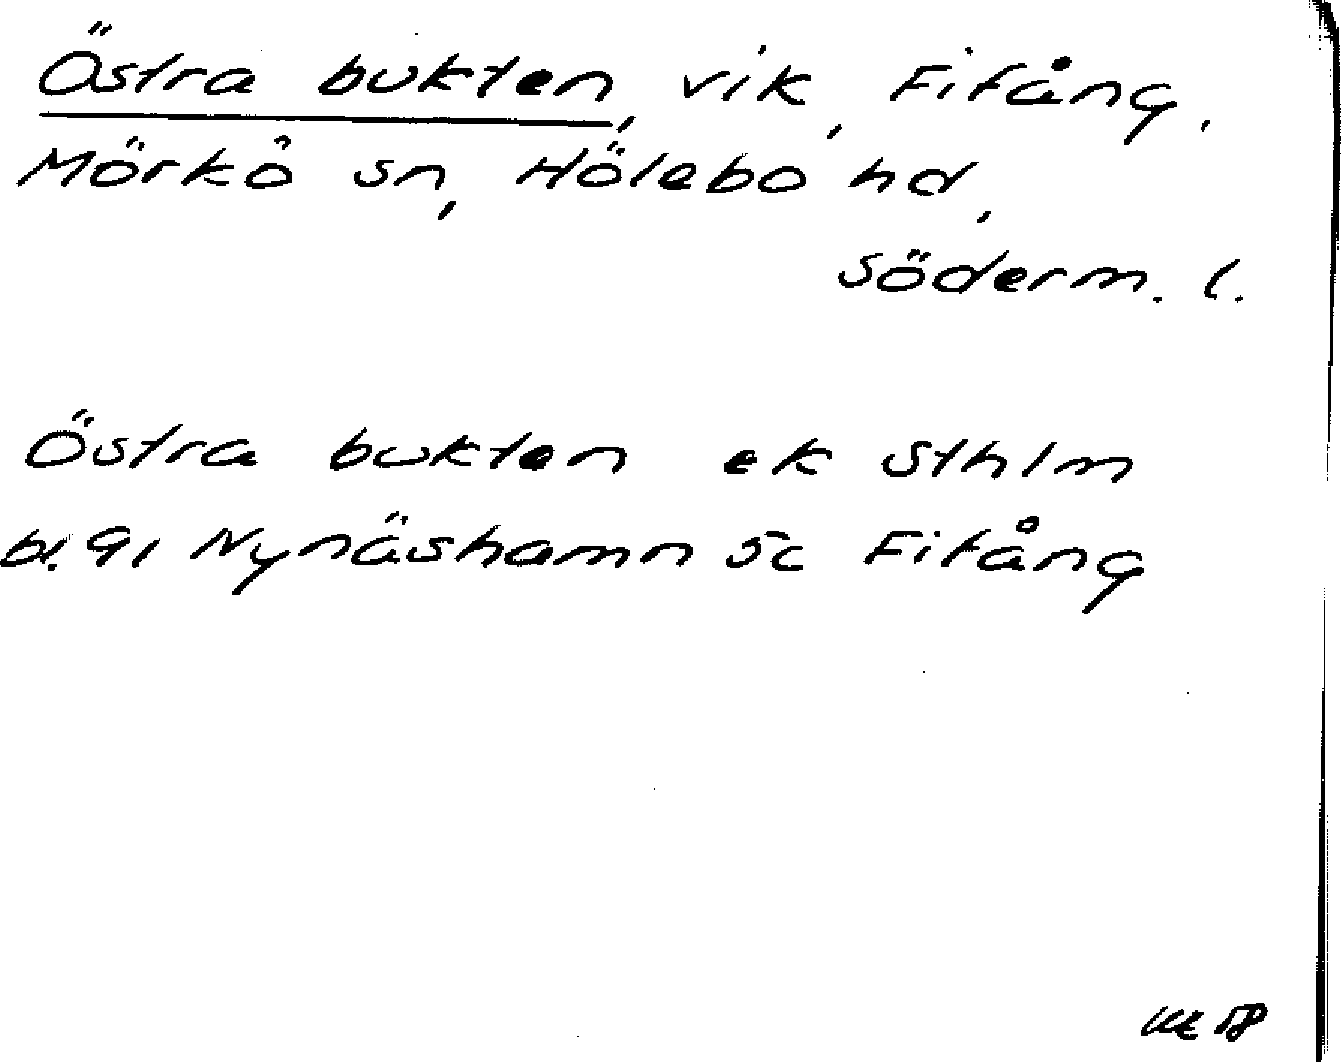 Östra bukten, vik, Fifång,
Mörkö sn, Hölebo hd,
Söderm. l.
Östra bukten ek Sthlm
bl. 91 Nynäshamn 5c Fifång
58